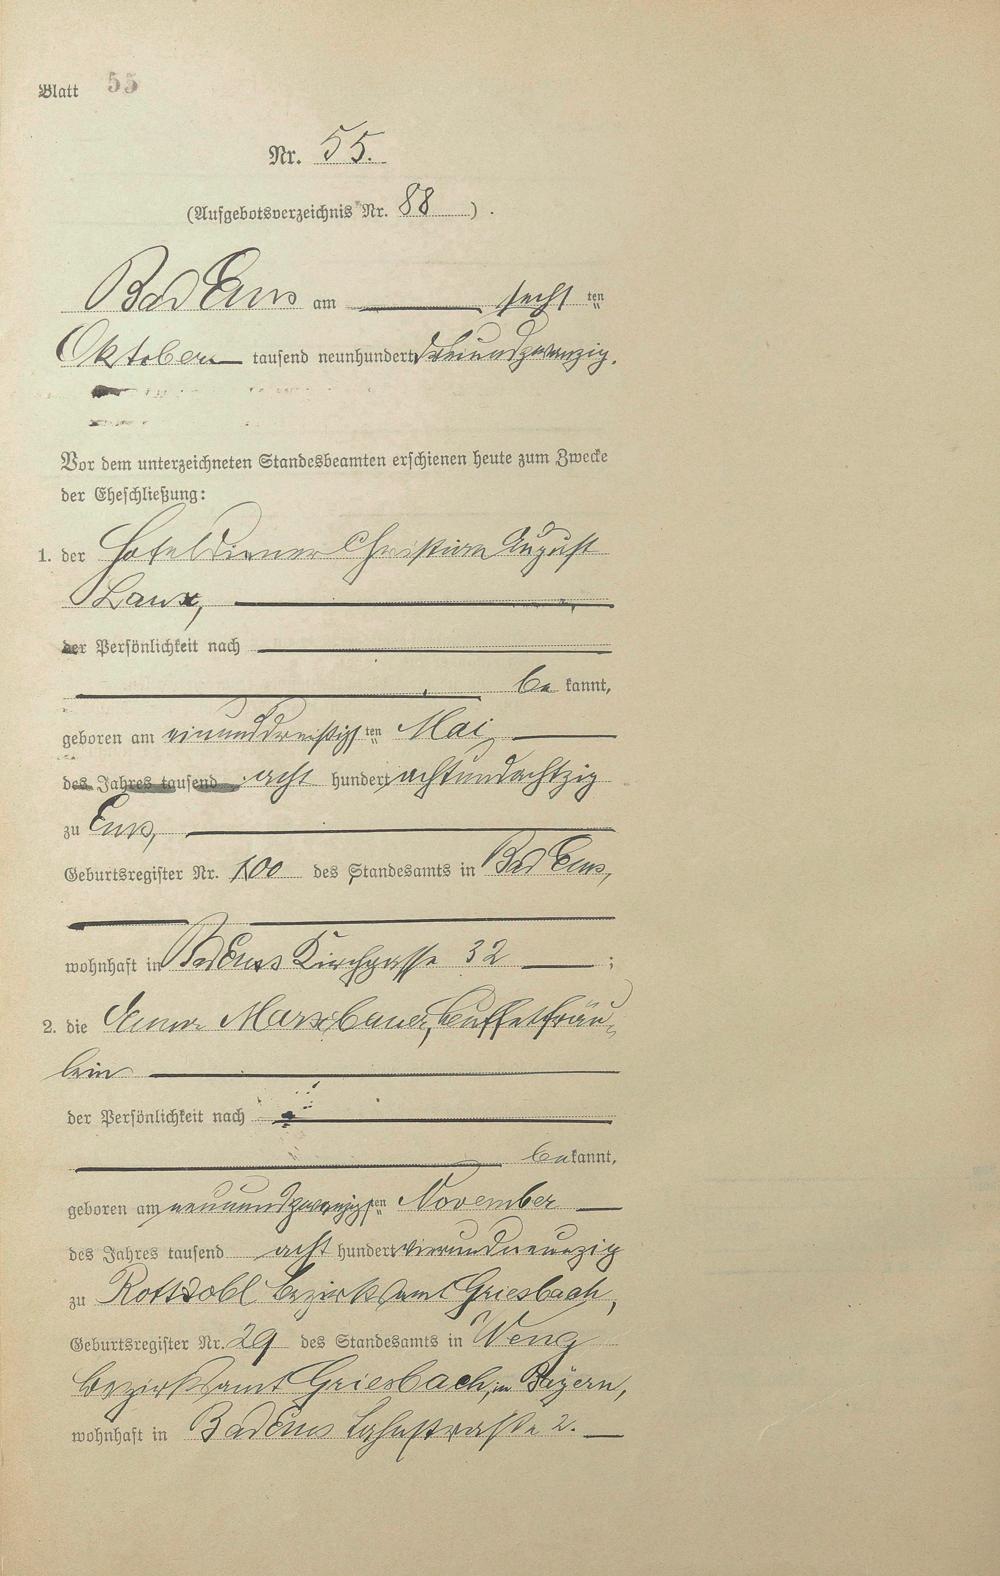 Blatt 55
Nr. 55.
(Aufgebotsverzeichnis Nr. 88).
Bad Ems am sechsten
Oktober tausend neunhundert dreiundzwanzig.
Vor dem unterzeichneten Standesbeamten erschienen heute zum Zwecke
der Eheschließung:
1. der Hoteldiener Christian August
Laux,
der Persönlichkeit nach
bekannt,
geboren am einunddreißigsten Mai
des Jahres tausend acht hundert achtundachtzig
zu Ems,
Geburtsregister Nr. 100 des Standesamts in Bad Ems,
wohnhaft in Bad Ems Kirchgasse 32 ;
2. die Anna Marxbauer, Buffetfräu-
lein
der Persönlichkeit nach
bekannt,
geboren am neunundzwanzigsten November
des Jahres tausend acht hundert vierundneunzig
zu Bezirksamt Griesbach,
Geburtsregister Nr. 29 des Standesamts in Weng
Bezirksamt Griesbach, in Bayern,
wohnhaft in Bad Ems Lahnstraße 2.